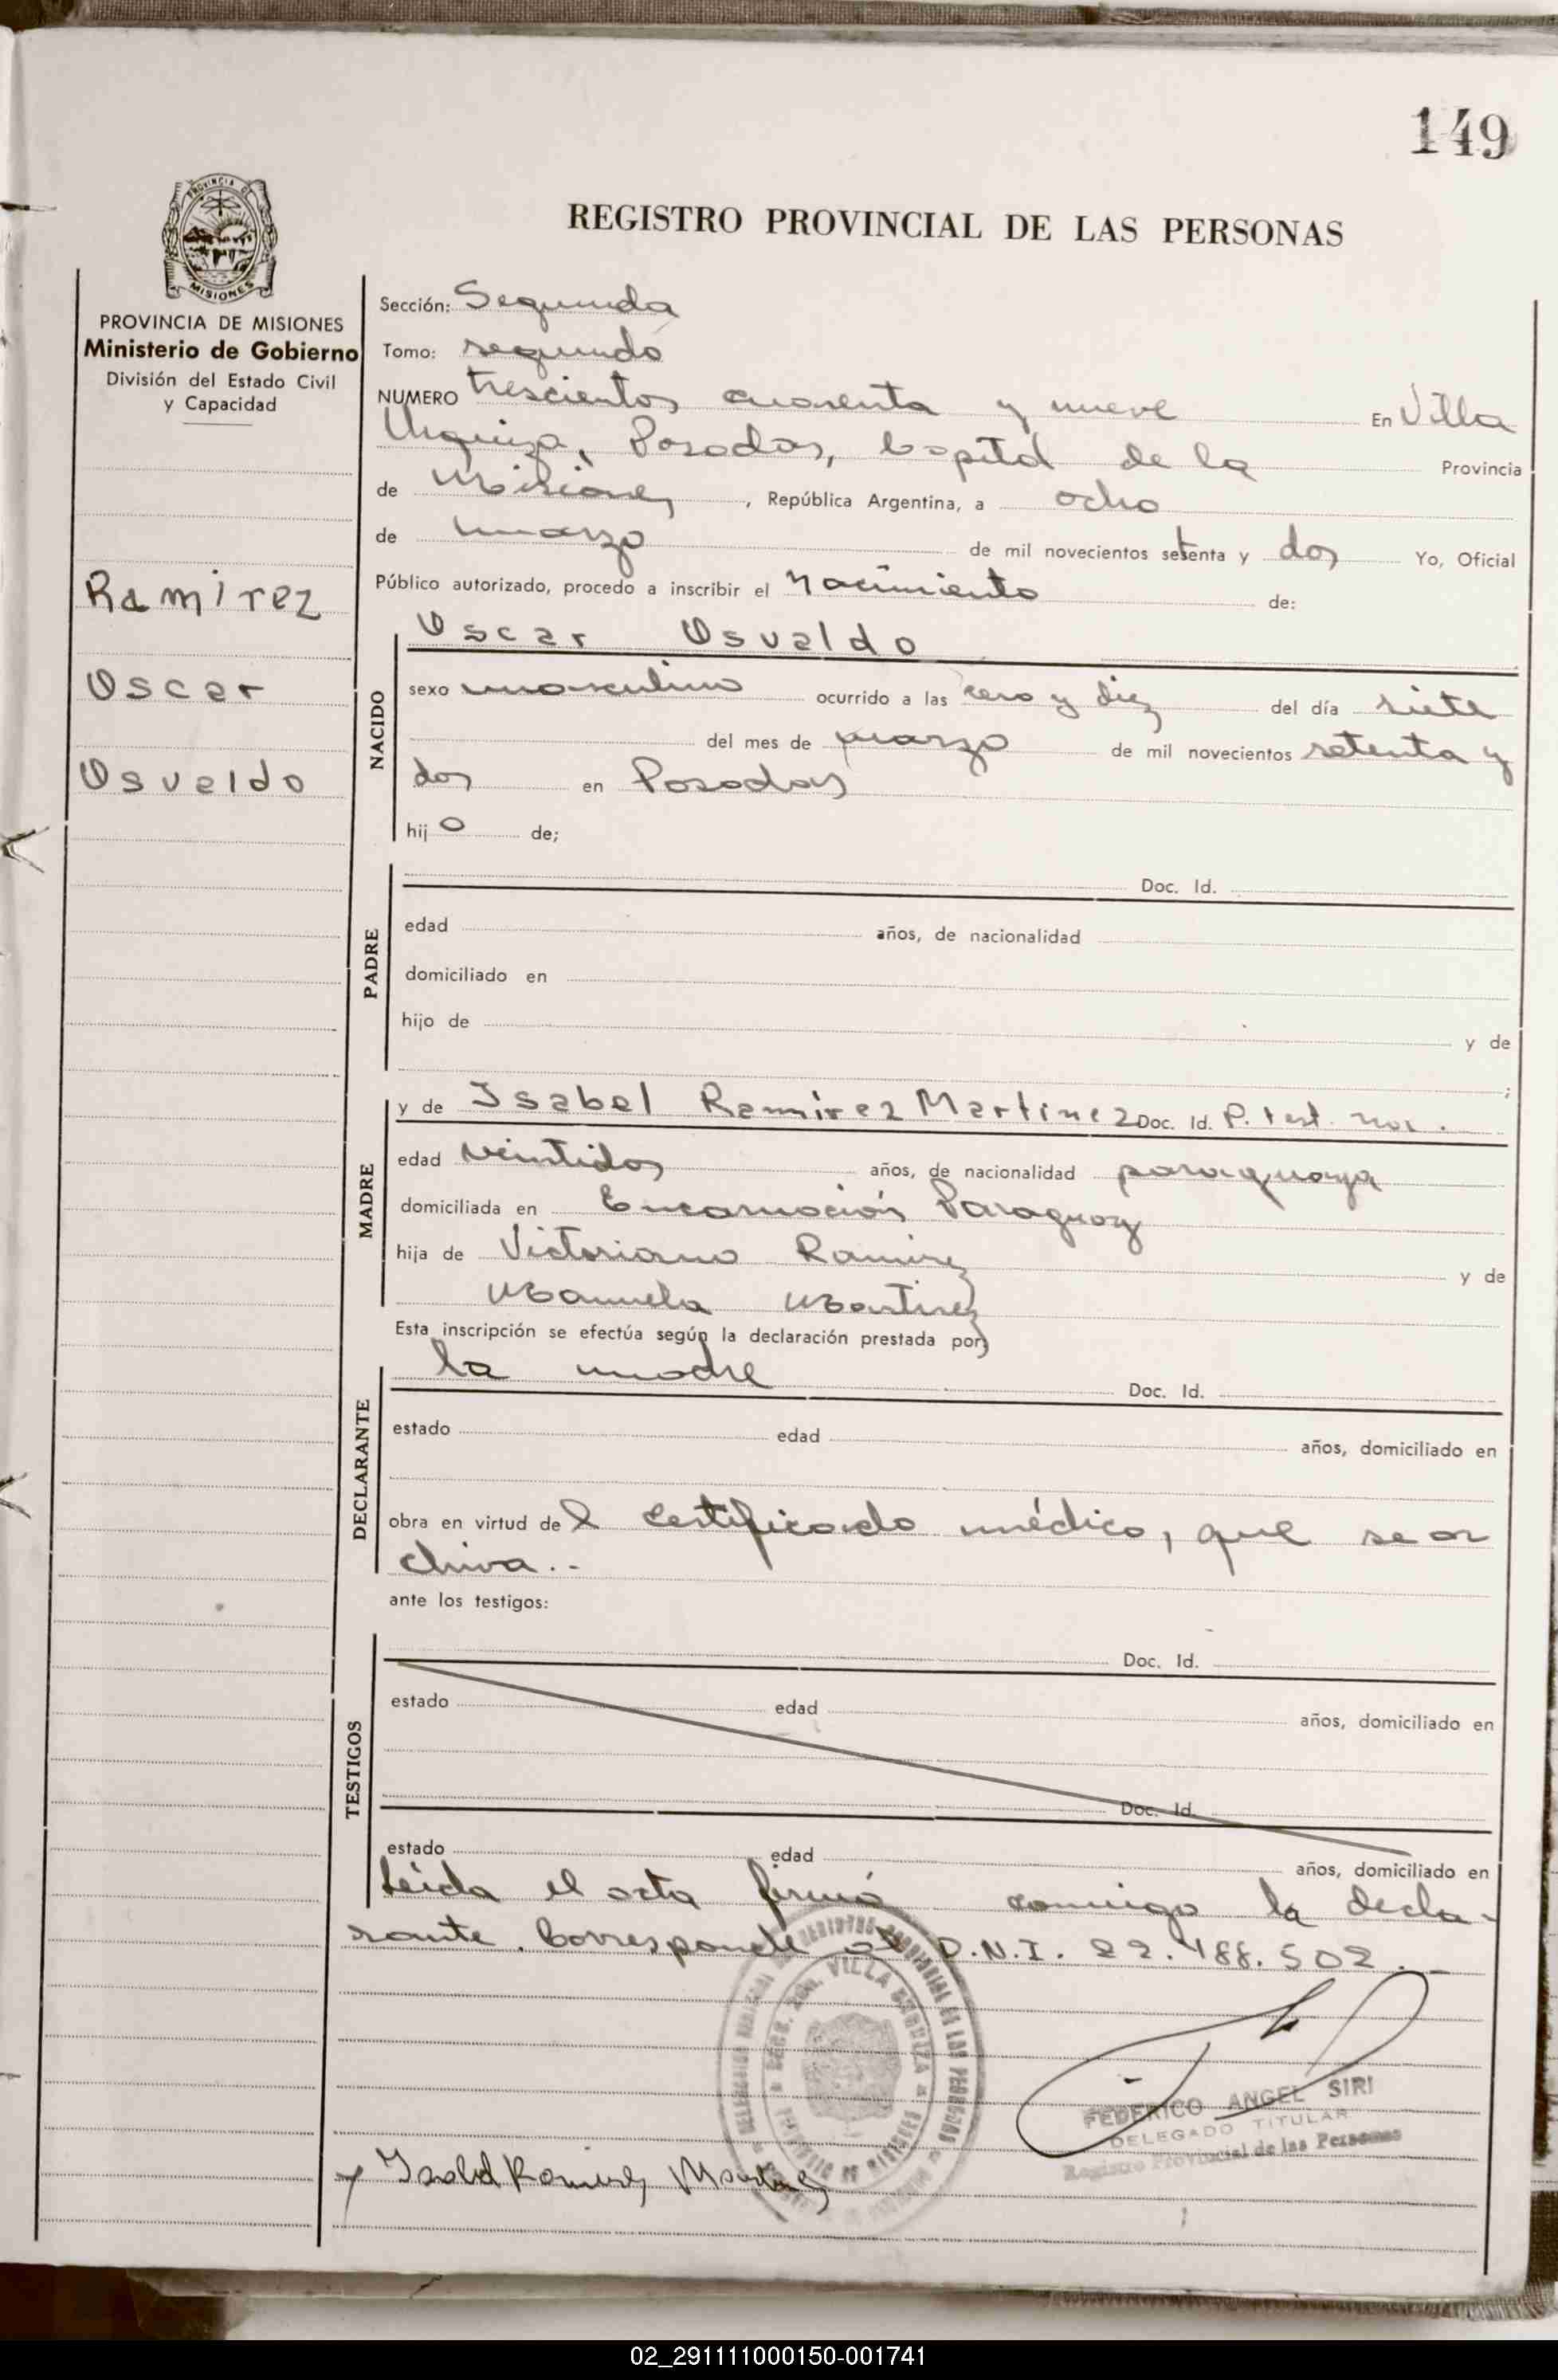 149
PROVINCIA DE
MISIONES
REGISTRO PROVINCIAL DE LAS PERSONAS
PROVINCIA DE MISIONES
Ministerio de Gobierno
División del Estado Civil
y Capacidad
Ramirez
Oscar
Osvaldo
Sección: Segunda
Tomo: segundo
NUMERO trescientos cuarenta y nueve En Villa
Urquiza, Posadas, Capital de la Provincia
de Misiones, República Argentina, a ocho
de marzo de mil novecientos setenta y dos Yo, Oficial
Público autorizado, procedo a inscribir el nacimiento de:
NACIDO
Oscar Osvaldo
sexo masculino ocurrido a las cero y diez del día siete
del mes de marzo de mil novecientos setenta y
dos en Posadas
hijo de;
PADRE
Doc. Id.
edad años, de nacionalidad
domiciliado en
hijo de y de
;
MADRE
y de Isabel Ramirez Martinez Doc. Id. P. test. nac.
edad veintidos años, de nacionalidad paraguaya
domiciliada en Encarnación Paraguay
hija de Victoriano Ramirez y de
Manuela Martinez
Esta inscripción se efectúa según la declaración prestada por
DECLARANTE
la madre Doc. Id.
estado edad años, domiciliado en
obra en virtud del certificado médico, que se ar
chiva.-
ante los testigos:
TESTIGOS
Doc. Id.
estado edad años, domiciliado en
Doc. Id.
estado edad años, domiciliado en
Leida el acta firmó conmigo la decla-
rante. Corresponde al D.N.I. 22.488.502.-
VILLA URQUIZA
FEDERICO ANGEL SIRI
DELEGADO TITULAR
Registro Provincial de las Personas
Isabel Ramirez Martinez
02_291111000150-001741